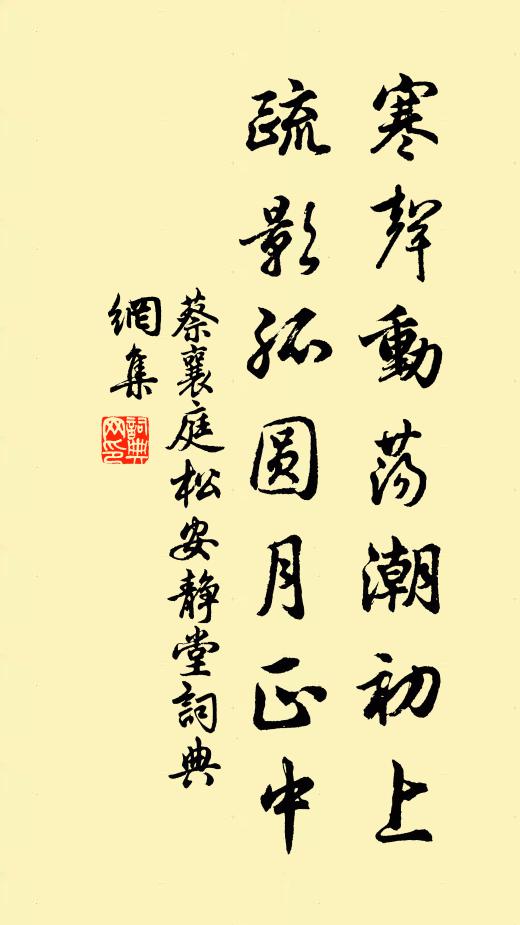 寒聲動蕩潮初上
疏影孤圓月正中
蔡襄庭松安靜堂詞典
網集
詞典
网印